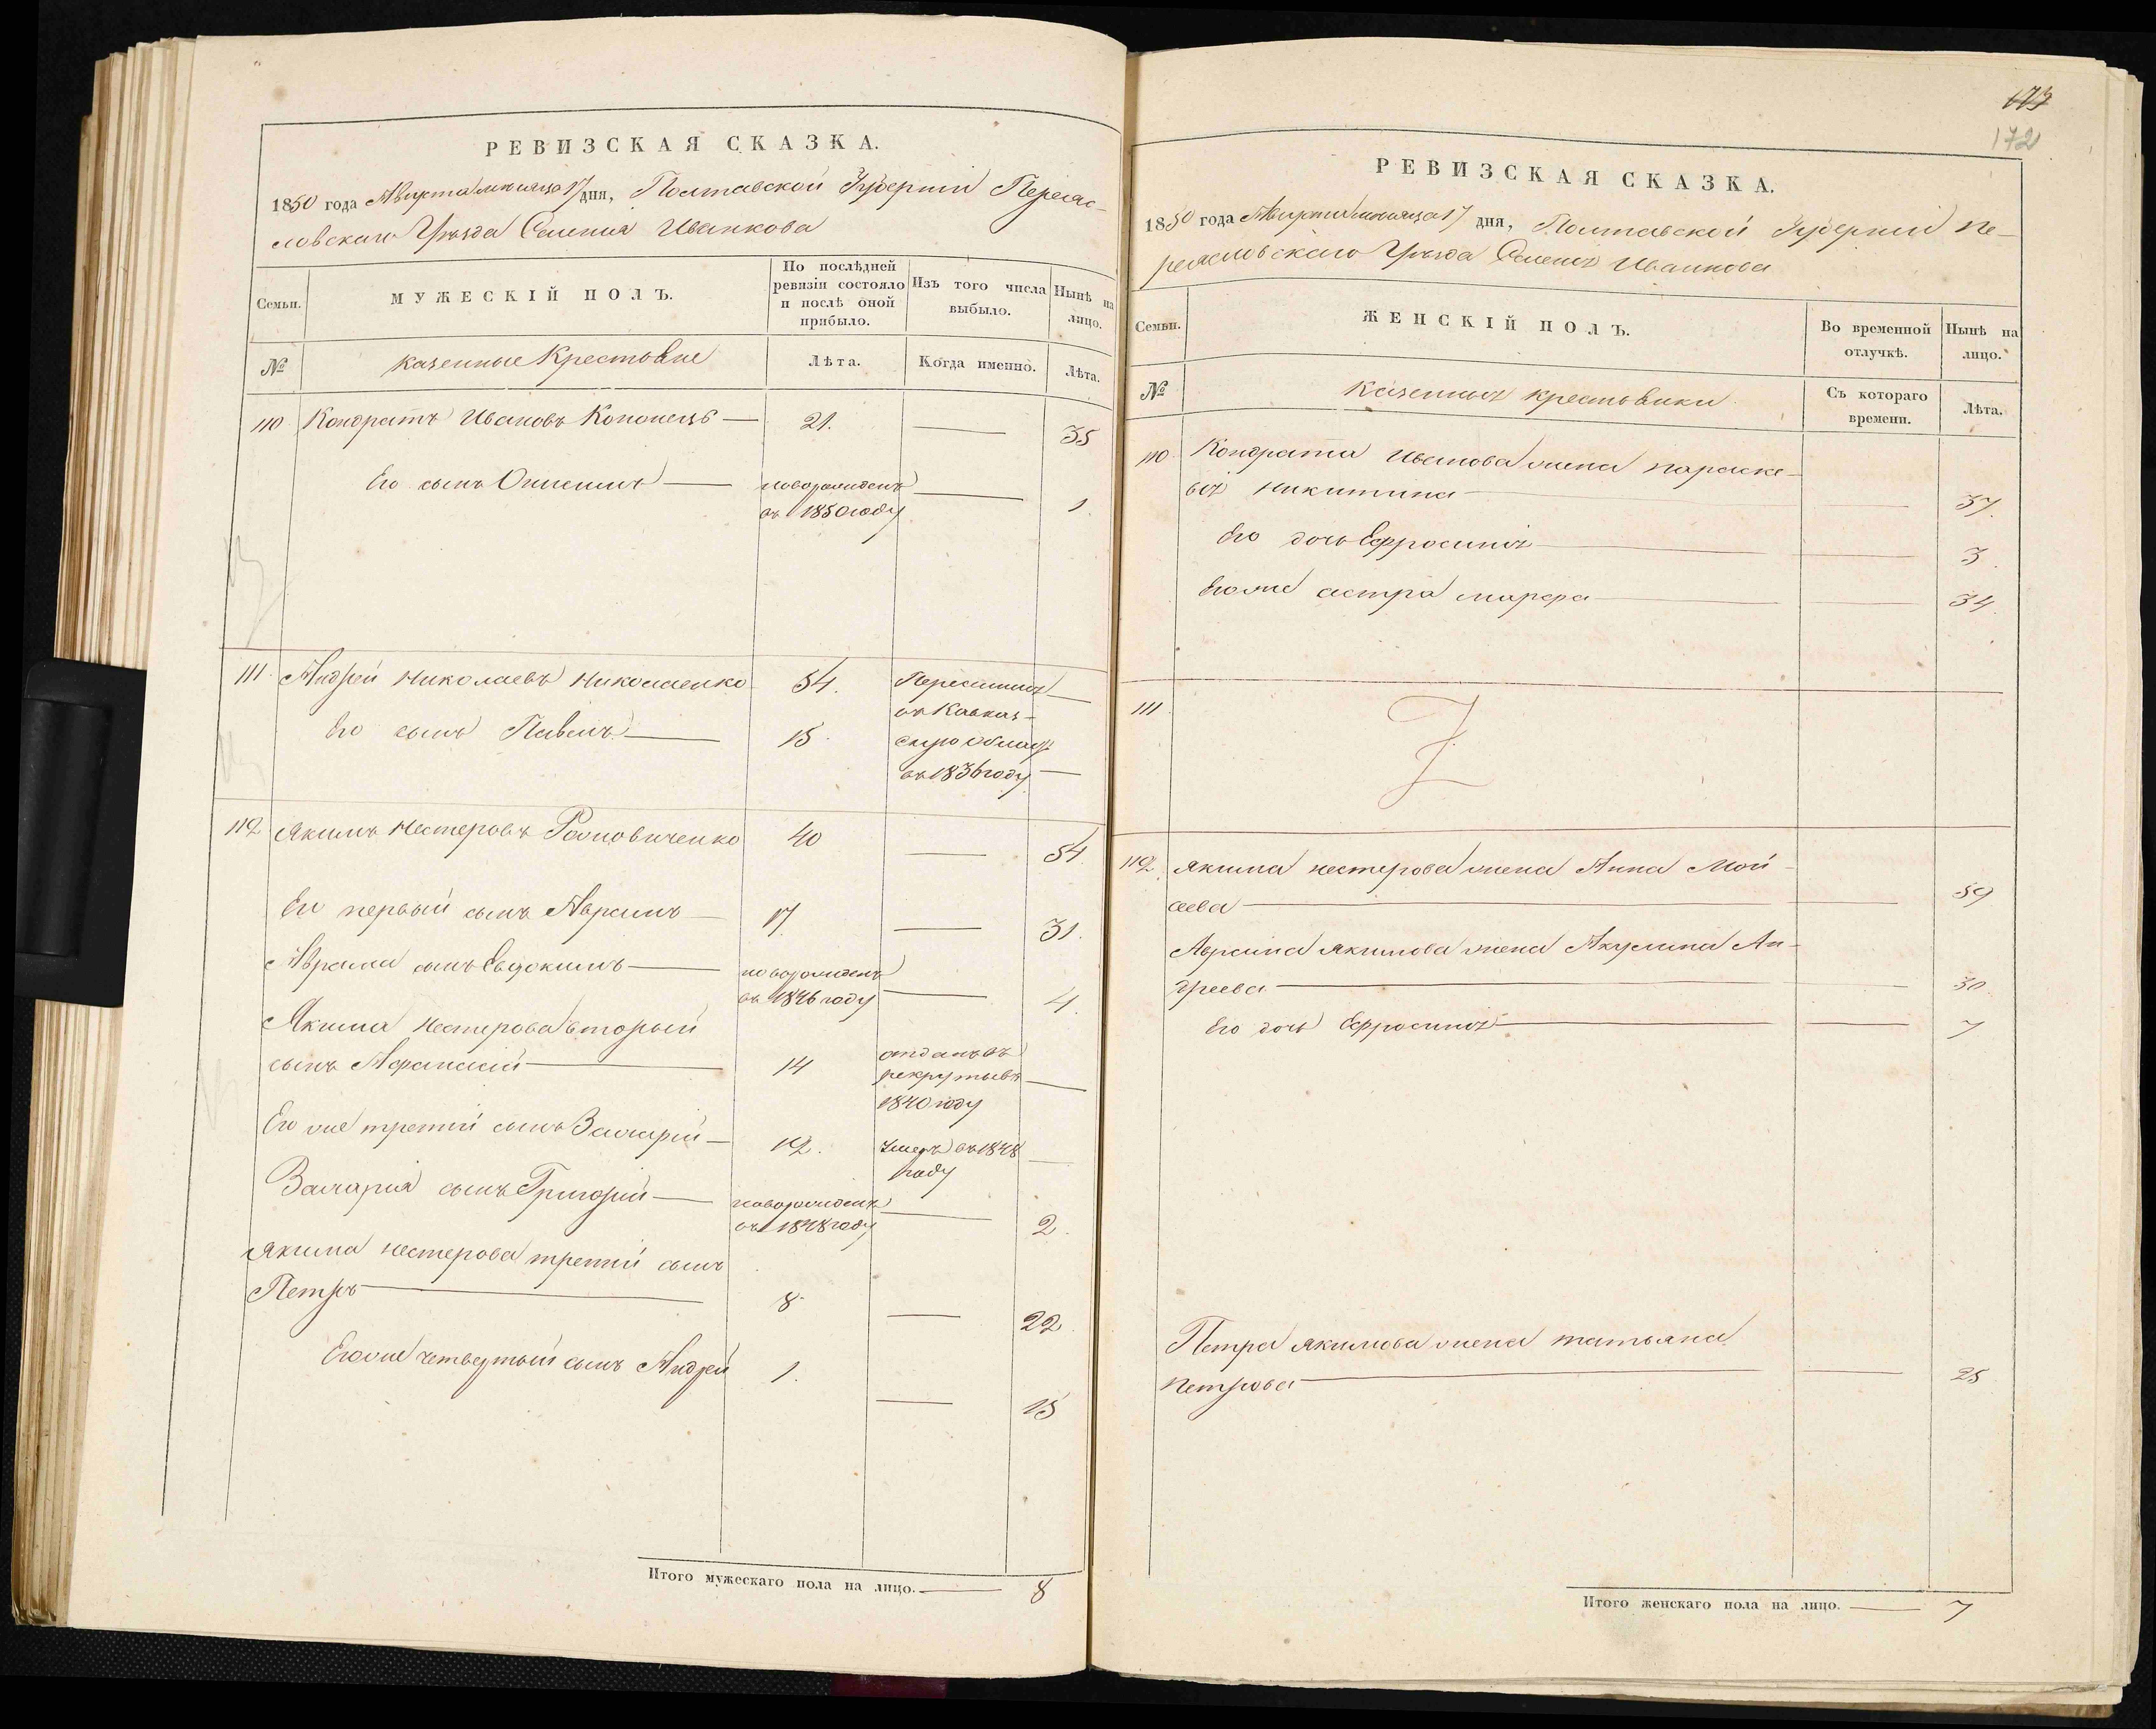 РЕВИЗСКАЯ СКАЗКА.
1850 года Августа месяца 17 дня, Полтавской Губерніи Переяс-
ловскаго Уѣзда Селенія Иванкова
Семьи.
МУЖЕСКІЙ ПОЛЪ.
По послѣдней ревизіи состояло и послѣ оной прибыло.
Изъ того числа выбыло.
Нынѣ на лицо.
№
казенные Крестьяне
Лѣта.
Когда именно.
Лѣта.
110 Кондратъ Ивановъ Кононецъ — 21. — 35
Его сынъ — новорожденъ
въ 1850 году — 1
111 Андрей Николаевъ Николаенко 54. Переселенъ —
въ Кавказ-
Его сынъ Павелъ — 15 скую область
въ 1836 году —
112 Якимъ Нестеровъ 40 — 54
Его первый сынъ Аврамъ — 17. — 31.
Аврама сынъ Евдокимъ — новорожденъ
въ 1846 году — 4
Якима Нестерова вторый
сынъ Афанасій — 14 отданъ въ
рекруты въ —
1840 году
Его же третій сынъ Захарій — 12. Умеръ въ 1848
году —
Захарія сынъ Григорій — новорожденъ
въ 1848 году — 2.
Якима Нестерова третій сынъ
Петръ — 8 — 22
Его же четвертый сынъ Андрей 1. — 15
Итого мужескаго пола на лицо. — 8
173
172
РЕВИЗСКАЯ СКАЗКА.
1850 года Августа месяца 17 дня, Полтавской Губерніи Пе-
реясловскаго Уѣзда Селенія Иванкова
Семьи.
ЖЕНСКІЙ ПОЛЪ.
Во временной отлучкѣ.
Нынѣ на лицо.
№
казенныя крестьянки
Съ котораго времени.
Лѣта.
110 Кондрата Иванова жена параске-
вія никитина — 37.
Его дочь Ефросинія — 3.
Его же сестра марфа — 34.
111
112 Якима нестерова жена Анна Мой-
сеева — 59
Аврама якимова жена Акулина Ан-
дреева — 30.
Его дочь Ефросинія — 7
Петра якимова жена татьяна
петрова — 25
Итого женскаго пола на лицо. — 7